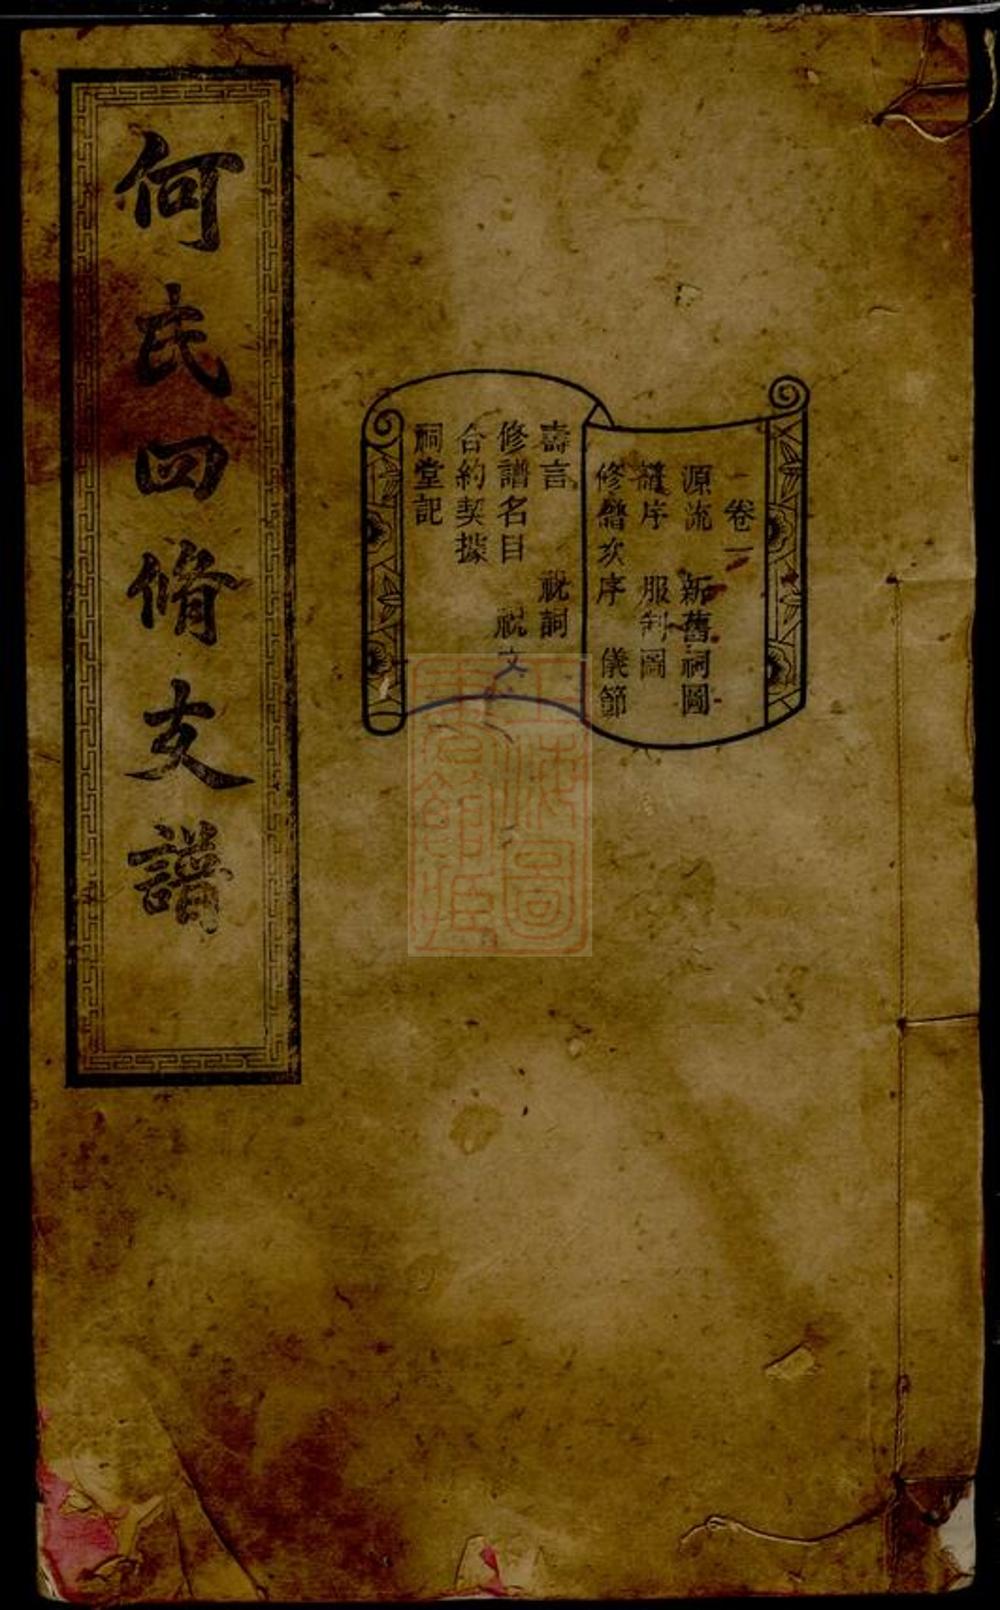 何氏四脩支譜
一卷一
源流 新舊祠圖
譜序 服制圖
修譜次序 儀節
壽言 祝詞
修譜名目 祝文
合約契據
祠堂記
上海圖書館藏